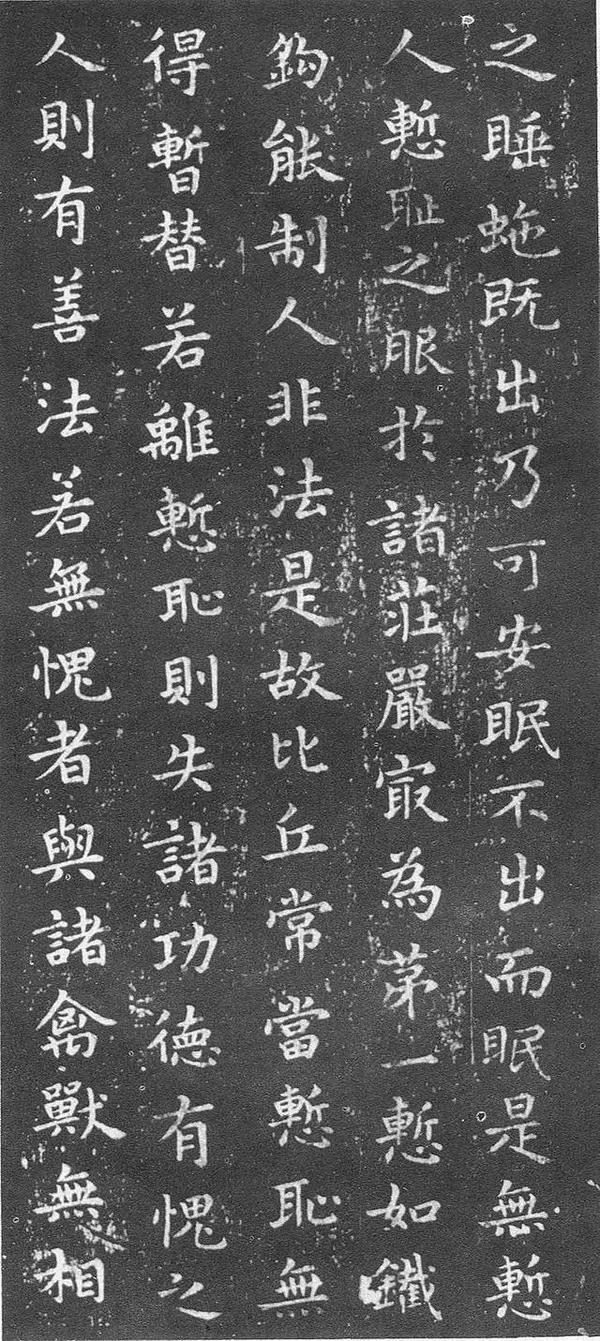 之睡虵既出乃可安眠不出而眠是無慙
人慙耻之服於諸莊嚴㝡為苐一慙如鐵
鈎能制人非法是故比丘常當慙恥無
得暫替若離慙恥則失諸功德有愧之
人則有善法若無愧者與諸禽獸無相